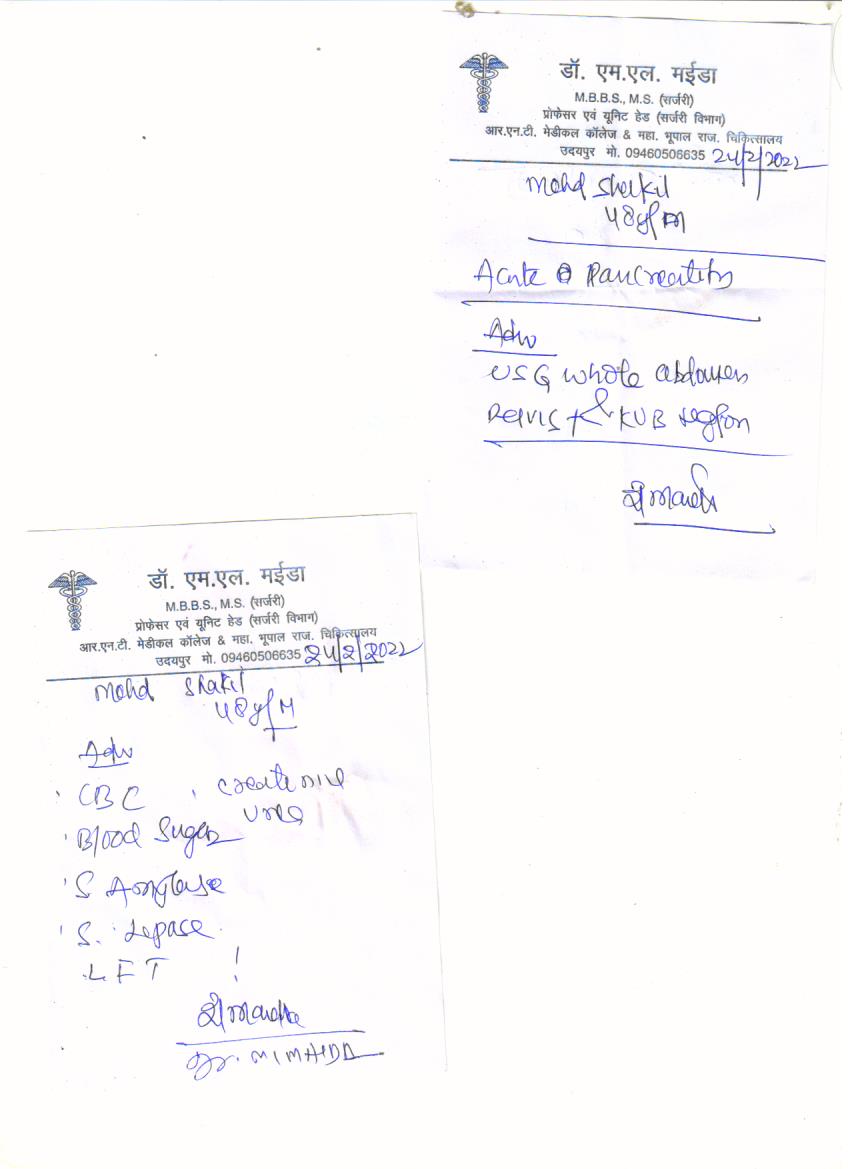 डॉ. एम.एल. मईडा
M.B.B.S., M.S. (सर्जरी)
प्रोफेसर एवं यूनिट हेड (सर्जरी विभाग)
आर.एन.टी. मेडीकल कॉलेज & महा. भूपाल राज. चिकित्सालय
उदयपुर मो. 09460506635 24/2/2022
Mohd Shakil
48y/M
Acute Pancreatitis
Adv
USG whole abdomen
Pelvis & KUB region
डॉ. एम.एल. मईडा
M.B.B.S., M.S. (सर्जरी)
प्रोफेसर एवं यूनिट हेड (सर्जरी विभाग)
आर.एन.टी. मेडीकल कॉलेज & महा. भूपाल राज. चिकित्सालय
उदयपुर मो. 09460506635 24/2/2022
Mohd Shakil
48y/M
Adv
CBC , Createnine
Urea
Blood Sugar
S Amylase
S. Lepase
LFT
Dr. M L MAHIDA